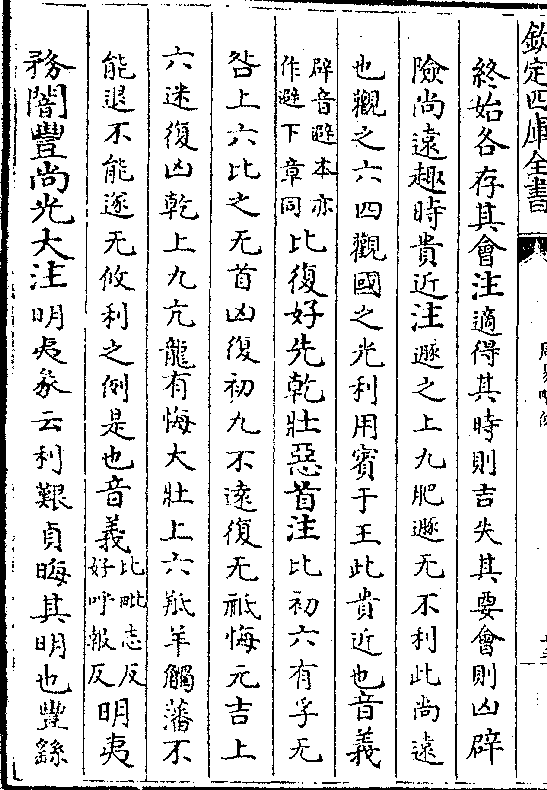 欽定四庫全書
終始各存其會注適得其時則吉失其要會則凶辟
險尚遠趣時貴近注遯之上九肥遯无不利此尚遠
也觀之六四觀國之光利用賓于王此貴近也音義
辟音避本亦
作避下章同
比復好先乾壯惡首注比初六有孚无
咎上六比之无首凶復初九不遠復无祗悔元吉上
六迷復凶乾上九亢龍有悔大壯上六羝羊觸藩不
能退不能遂无攸利之例是也音義
比毗志反
好呼報反
明夷
務闇豐尚光大注明夷彖云利艱貞晦其明也豐繇